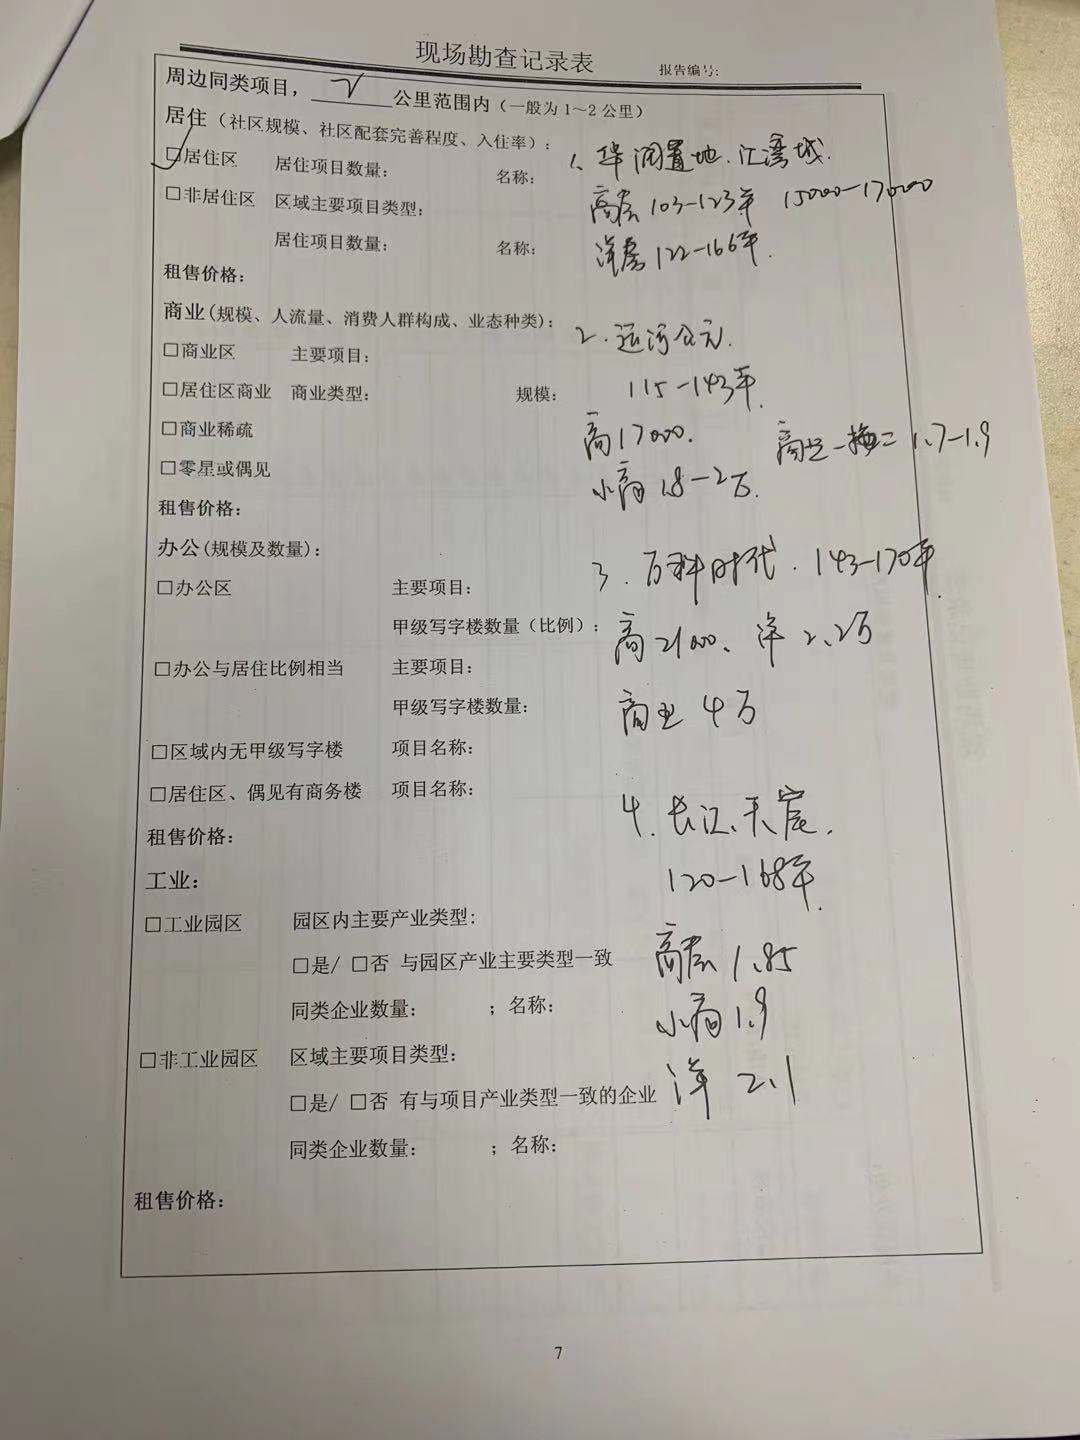 现场勘查记录表
报告编号:
周边同类项目, 2 公里范围内(一般为1~2公里)
居住(社区规模、社区配套完善程度、入住率):
□居住区 居住项目数量: 名称: 1、华润置地.江湾城.
□非居住区 区域主要项目类型: 高层 103-123平 15000-170000
居住项目数量: 名称: 洋房 122-166平.
租售价格:
商业(规模、人流量、消费人群构成、业态种类):
2.运河公元.
□商业区 主要项目:
□居住区商业 商业类型: 规模: 115-143平.
□商业稀疏 高17000. 1.7-1.9
□零星或偶见 小高 1.8-2万.
租售价格:
办公(规模及数量):
3. 时代. 143-170平.
□办公区 主要项目:
甲级写字楼数量(比例): 高2100、洋 2.2万
□办公与居住比例相当 主要项目:
甲级写字楼数量: 商业 4万
□区域内无甲级写字楼 项目名称:
□居住区、偶见有商务楼 项目名称:
4.长江.天宸.
租售价格:
工业: 120-168平.
□工业园区 园区内主要产业类型:
□是/ □否 与园区产业主要类型一致 高层 1.85
同类企业数量: ;名称: 小高 1.9
□非工业园区 区域主要项目类型:
□是/ □否 有与项目产业类型一致的企业 洋 2.1
同类企业数量: ;名称:
租售价格:
7